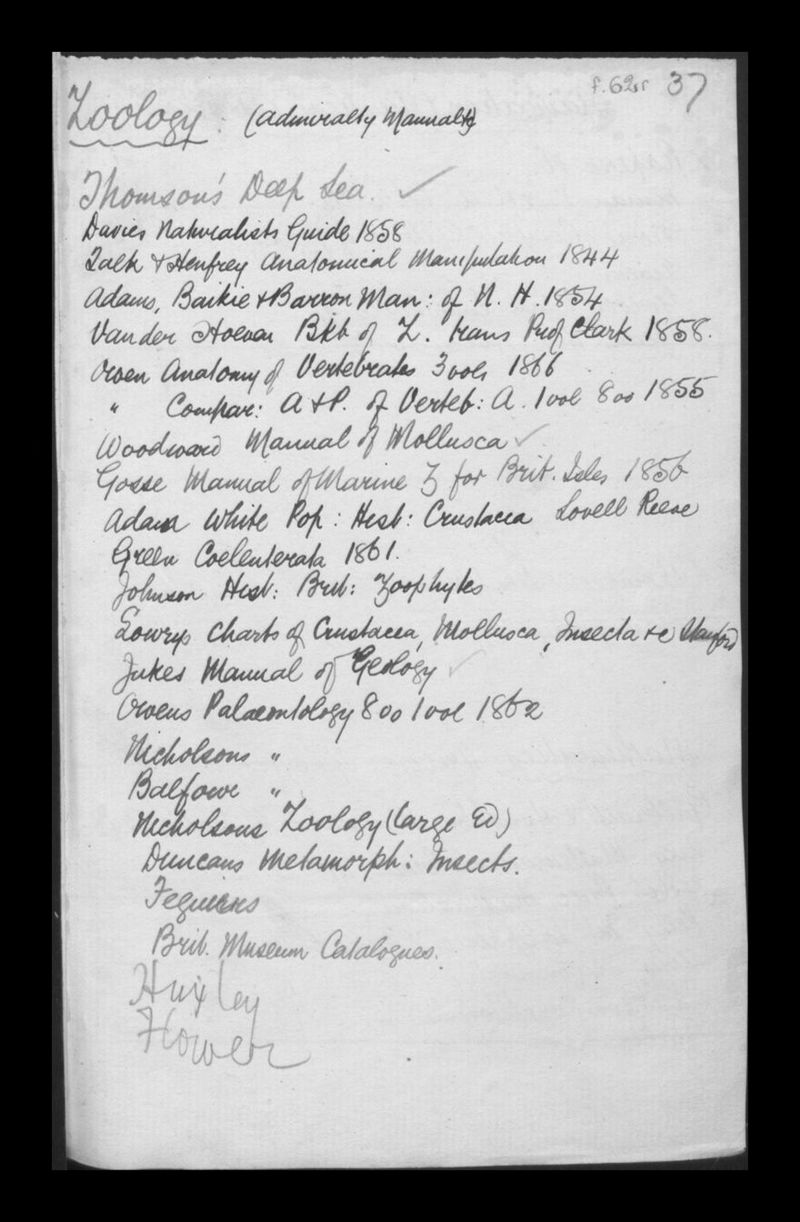 f.62r 37
Zoology. (Admiralty Manual &)
Thomson's Deep Sea. ✓
Davies Naturalists Guide 1858
Tulk & Henfrey Anatomical Manipulation 1844
Adams, Baikie & Barron Man: of N. H. 1854
Van der Hoeven Bkt of Z. trans Prof Clark 1858.
Owen Anatomy of Vertebrates 3 vols 1866
" Compar: A & P. of Verteb: A. 1 vol 8vo 1855
Woodward Manual of Mollusca ✓
Gosse Manual of Marine Z for Brit. Isles 1856
Adam White Pop: Hist: Crustacea Lovell Reeve
Green Coelenterata 1861.
Johnson Hist: Brit: Zoophytes
Lowrys Charts of Crustacea, Mollusca, Insecta &c Stanford
Jukes Manual of Geology ✓
Owens Palaeontology 8vo 1 vol 1862
Nicholsons "
Balfour "
Nicholsons Zoology (large Ed)
Duncans Metamorph: Insects.
Brit. Museum Catalogues.
Huxley
Flower